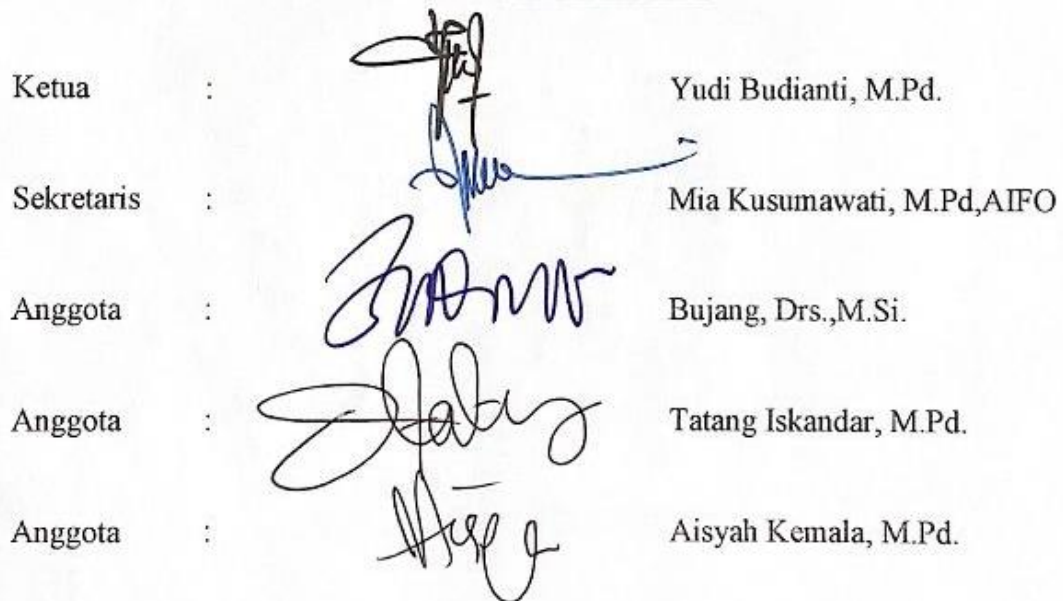 Ketua : Yudi Budianti, M.Pd.
Sekretaris : Mia Kusumawati, M.Pd,AIFO
Anggota : Bujang, Drs.,M.Si.
Anggota : Tatang Iskandar, M.Pd.
Anggota : Aisyah Kemala, M.Pd.